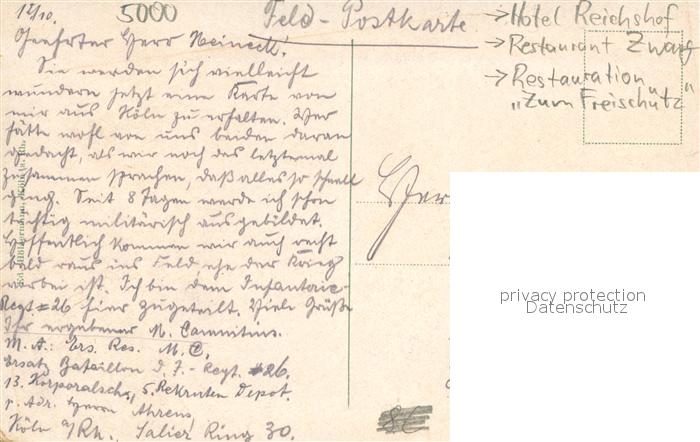 12/10.
5000
Feld-Postkarte
→ Hotel Reichshof
→ Restaurant Zwarg
→ Restauration
„Zum Freischütz"
Geehrter Herr Meineck!
Sie werden sich vielleicht
wundern jetzt eine Karte von
mir aus Köln zu erhalten. Wer
hätte wohl von uns beiden daran
gedacht, als wir noch das letztemal
zusammen sprachen, daß alles so schnell
ging. Seit 8 Tagen werde ich schon
tüchtig militärisch ausgebildet.
Hoffentlich kommen wir auch recht
bald raus ins Feld, ehe der Krieg
vorbei ist. Ich bin dem Infanterie
Regt #26 hier zugeteilt. Viele Grüße
Ihr ergebener M.
M. A.: Ers. Res. M. C.
Ersatz Bataillon d. J.-Regt. #26.
13. Korporalsch., 5. Rekruten Depot.
p. Adr. Herrn Ahrens
Köln a/Rh., Salier Ring 30.
Herr
privacy protection
Datenschutz